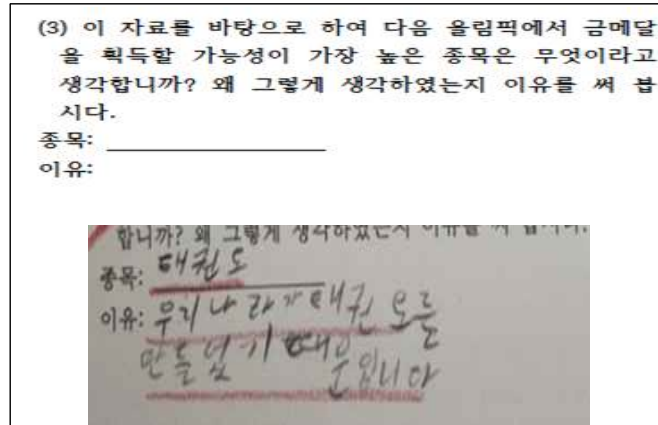 (3) 이 자료를 바탕으로 하여 다음 올림픽에서 금메달
을 획득할 가능성이 가장 높은 종목은 무엇이라고
생각합니까? 왜 그렇게 생각하였는지 이유를 써 봅
시다.
종목:
이유:
합니까? 왜 그렇게 생각하였는지 이유를 써 봅시다.
종목: 태권도
이유: 우리나라가 태권도를
만들었기 때문입니다